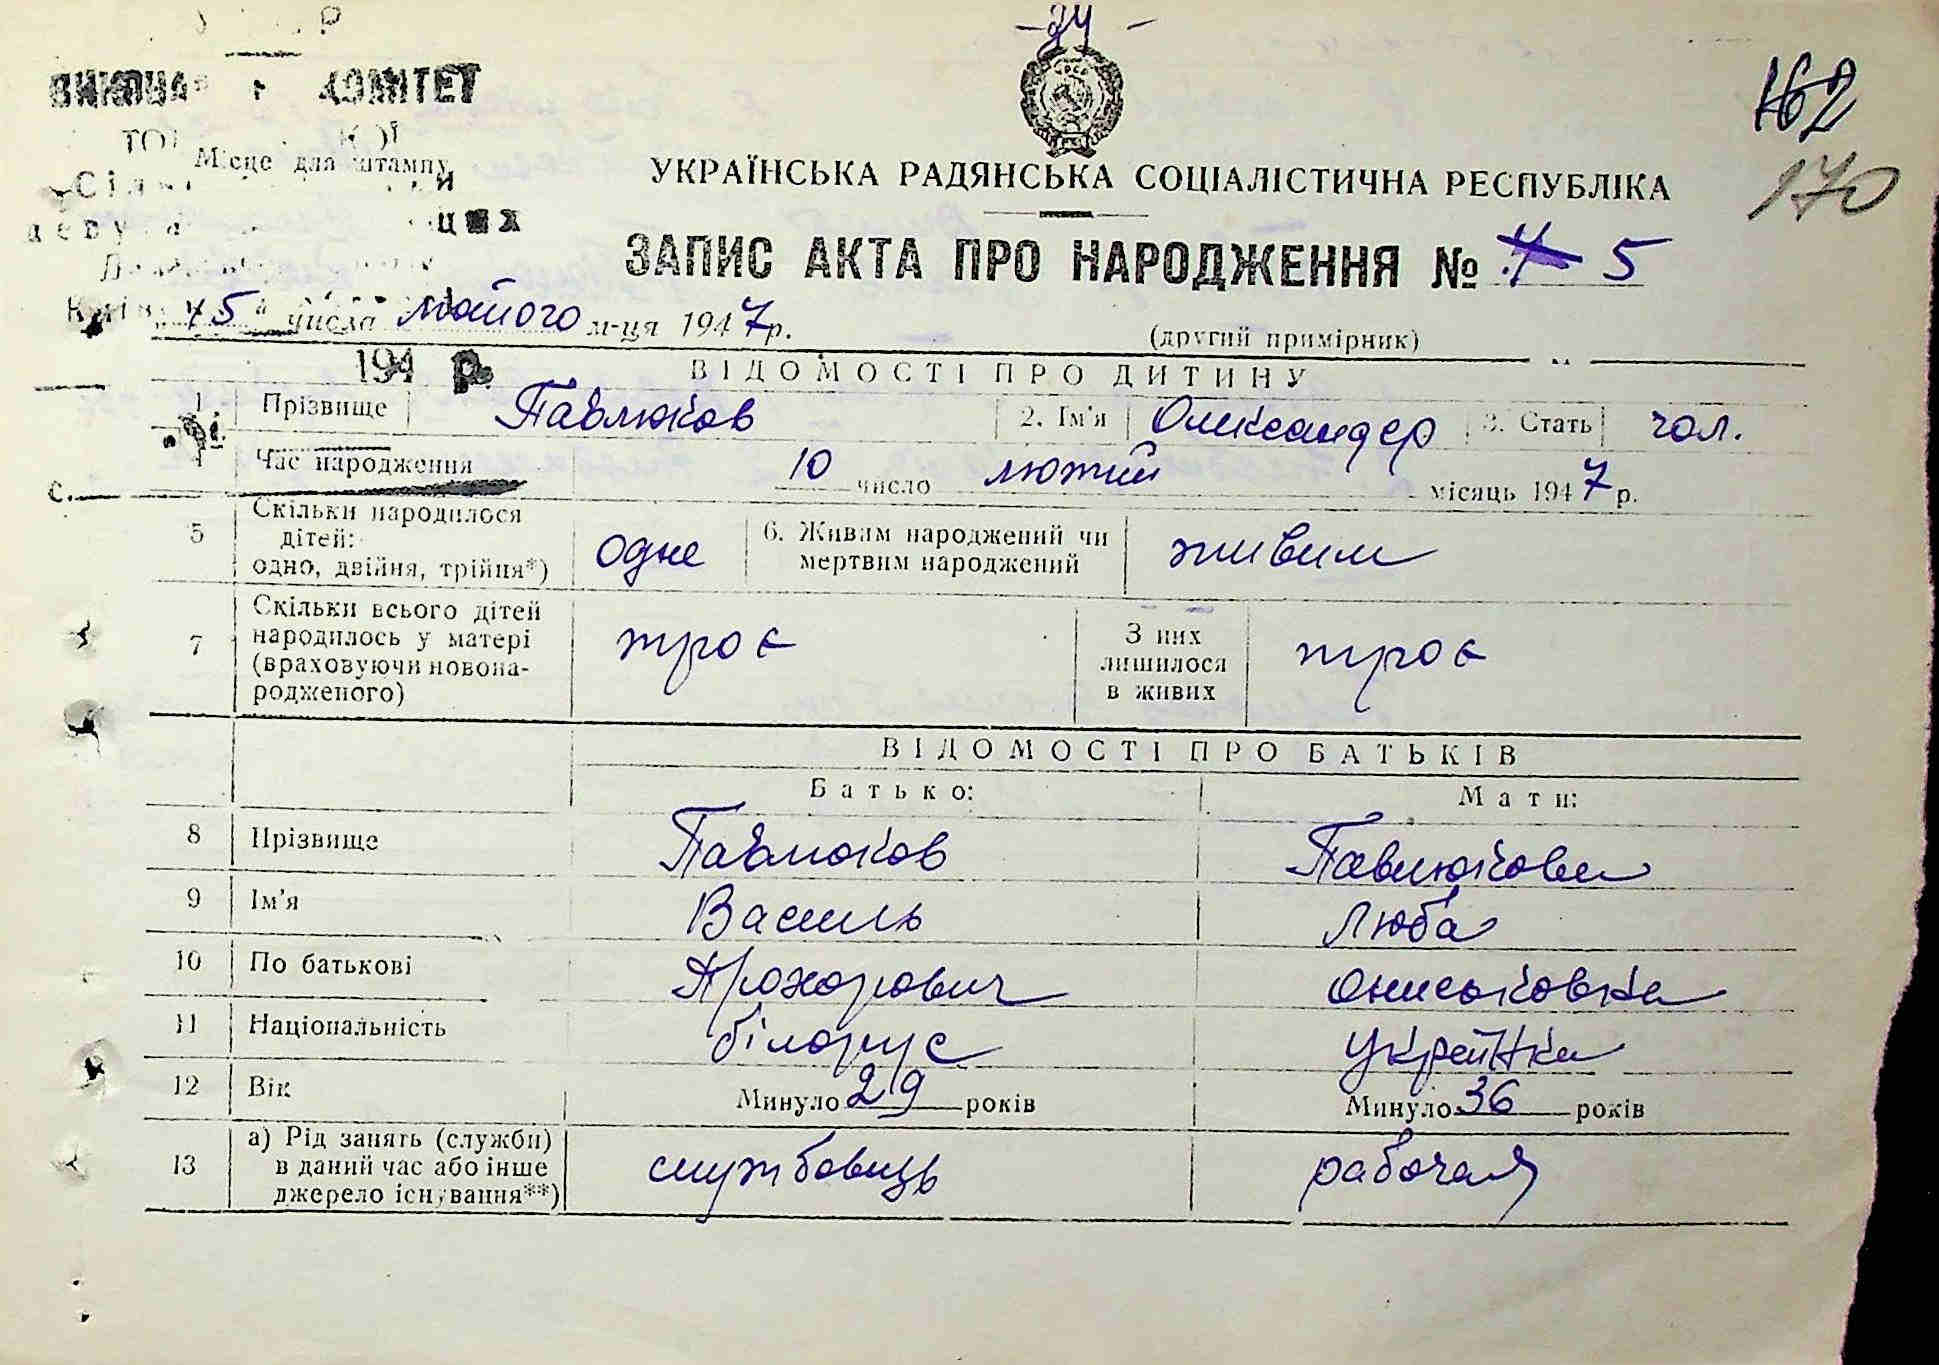 -24-
ВИКОНА КОМІТЕТ
Місце для штампу
162
170
УКРАЇНСЬКА РАДЯНСЬКА СОЦІАЛІСТИЧНА РЕСПУБЛІКА
ЗАПИС АКТА ПРО НАРОДЖЕННЯ № 4 5
15 " числа лютого м-ця 1947 р.
(другий примірник)
194 р.
ВІДОМОСТІ ПРО ДИТИНУ
1 Прізвище Павлюков 2. Ім'я Олександер 3. Стать чол.
4 Час народження 10 число лютий місяць 1947 р.
5 Скільки народилося дітей: одно, двійня, трійня*) одне 6. Живим народжений чи мертвим народжений живим
7 Скільки всього дітей народилось у матері (враховуючи новона-родженого) троє З них лишилося в живих троє
ВІДОМОСТІ ПРО БАТЬКІВ
Батько: Мати:
8 Прізвище Павлюков Павлюкова
9 Ім'я Василь Люба
10 По батькові Прохорович Ониськовна
11 Національність білорус Українка
12 Вік Минуло 29 років Минуло 36 років
13 а) Рід занять (служби) в даний час або інше джерело існування**) службовець рабочая